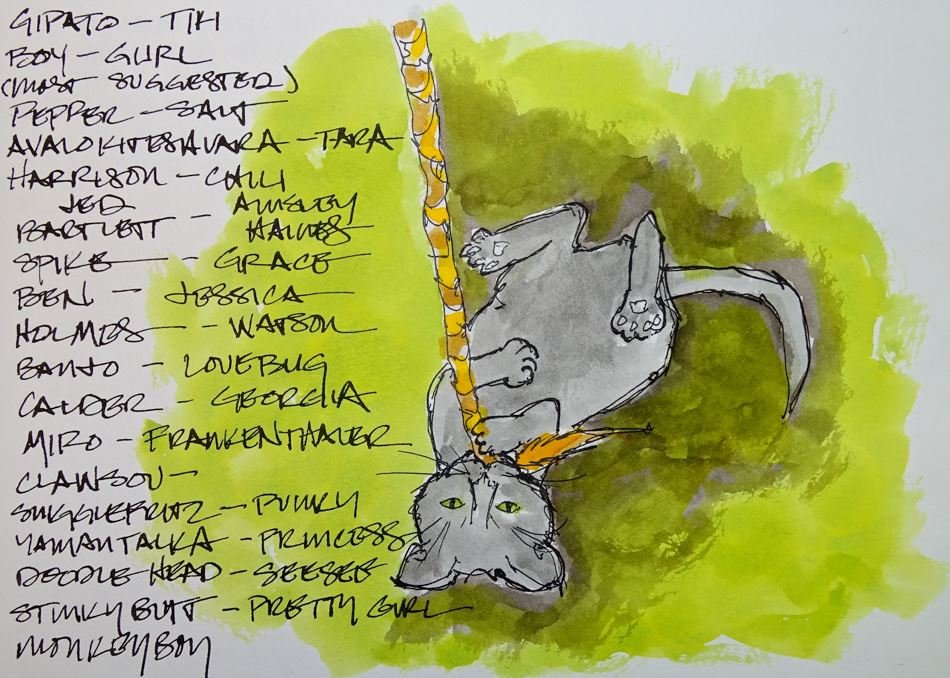 GIPATO - TIKI
BOY - GURL
(MOST SUGGESTED)
PEPPER - SALT
AVALOKITESHAVARA - TARA
HARRISON - CHILI
JED AINSLEY
BARTLETT - HAINES
SPIKE - GRACE
BEN - JESSICA
HOLMES - WATSON
BANJO - LOVEBUG
CALDER - GEORGIA
MIRO - FRANKENTHALER
CLAWSON -
SNUGGLEBUTZ - PUNKY
YAMANTALKA - PRINCESS
DOODLE HEAD - SEESEE
STINKY BUTT - PRETTY GURL
MONKEY BOY